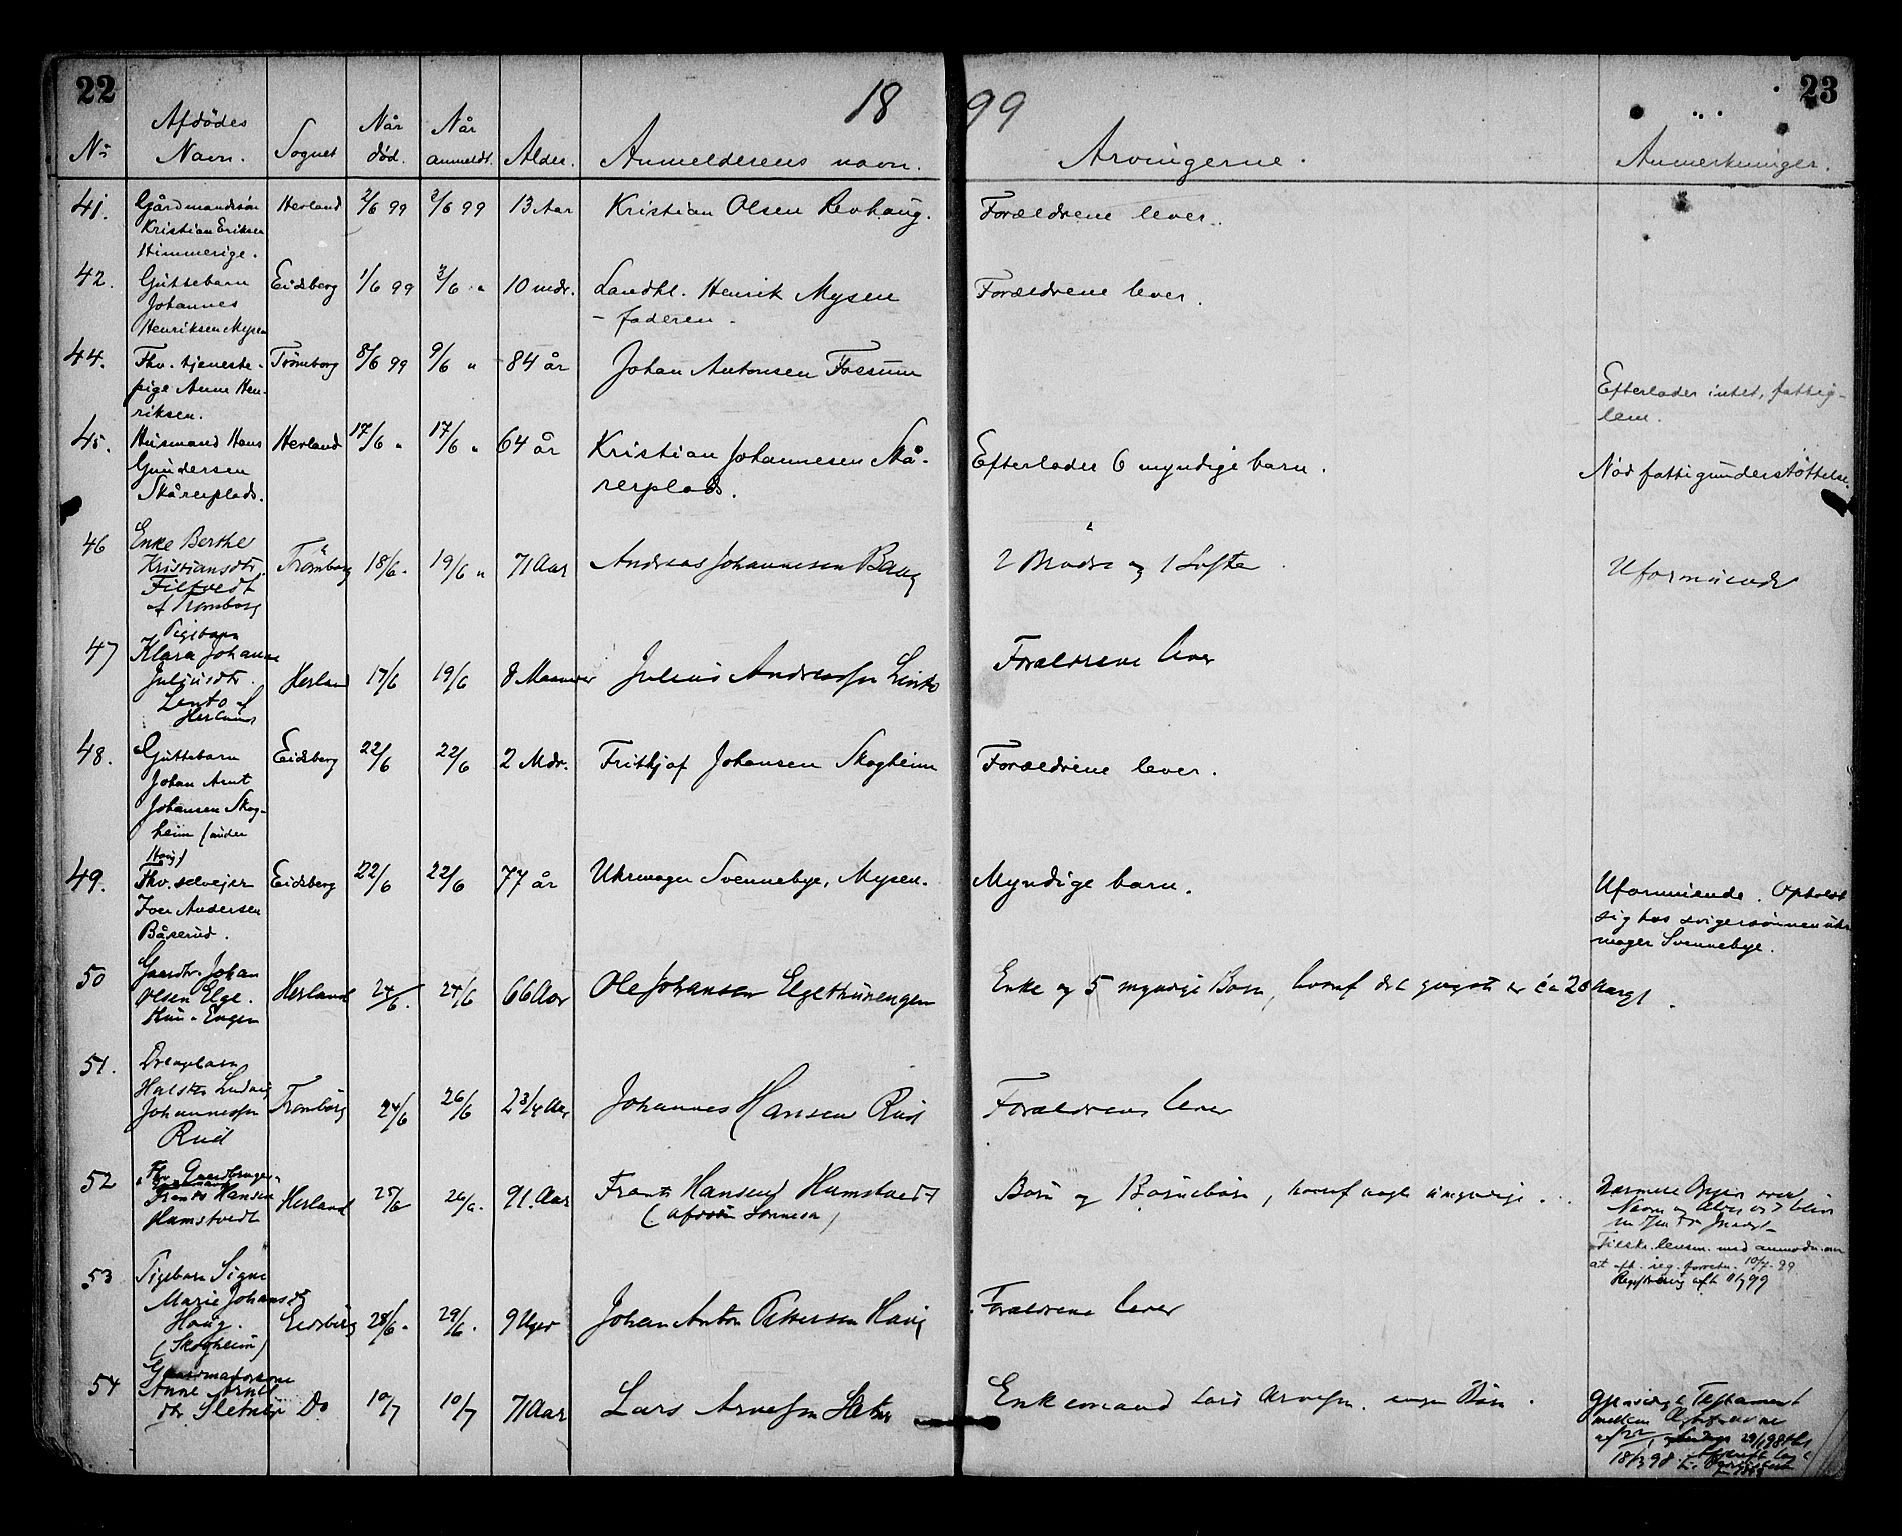 22
18 99
23
No
Afdødes Navn.
Sognet
Når død.
Når anmeldt.
Alder.
Anmelderens navn.
Arvingerne.
Anmerkninger.
41. Gårdmandssøn Herland 2/6 99 2/6 99 13 Aar Kristian Olsen Revhaug. Forældrene lever.
Kristian Eriksen
Himmerige.
42. Guttebarn Eidsberg 1/6 99 3/6 " 10 mdr. Landhl. Henrik Mysen Forældrene lever.
Johannes - faderen -
Henriksen Mysen
44. Fhv. tjeneste- Trømborg 8/6 99 9/6 " 84 år Johan Antonsen Fossum Efterlader intet, fattig-
pige Anne Hen- lem.
riksen.
45. Husmand Hans Herland 17/6 " 17/6 " 64 år Kristian Johannesen Skå- Efterlader 6 myndige barn. Nød fattigunderstøttelse.
Gundersen rerplads.
Skårerplads.
46 Enke Berthe
Kristiansdtr. Trømborg 18/6 " 19/6 " 71 Aar Andreas Johannesen Baug 2 Brødre og 1 Søster Uformuende
Filtvedt
af Trømborg
47 Pigebarn
Klara Johanne Forældrene lever
Juliusdtr. Herland 17/6 19/6 8 Maaneder Julius Andreassen Lento
Lento af
Herland
48. Guttebarn Eidsberg 22/6 22/6 2 Mdr. Frithjof Johansen Skogheim Forældrene lever.
Johan Arnt
Johansen Skog-
heim (under
Haug)
49. Fhv. selveier Eidsberg 22/6 22/6 77 år Uhrmager Svennebye, Mysen. Myndige barn. Uformuende. Opholdt
Iver Andersen sig hos svigersønnen uhr-
Båserud. mager Svennebye.
50 Gaardbr. Johan
Olsen Elge- Herland 24/6. 24/6 66 Aar Ole Johansen Elgethunengen Enke og 5 myndige Børn, hvoraf det yngste er ca 28 Aar
thun-Engen
51. Drengebarn
Halsten Ludvig
Johannessen Trømborg 24/6 26/6 2 3/4 Aar Johannes Hansen Rud Forældrene lever
Rud
52 Fhv. Gaardbruger
Frants Hansen Herland 25/6 26/6. 91 Aar Frants Hansen Hamstvedt Børn og Børnebørn, hvoraf nogle umyndige. Nærmere Opgave over
Hamstvedt (Afdødes Sønnesøn) Navn og Alder
Tilskr. lensm. med anmodn. om
at aft. reg. forretn. 10/7 99
Registrering afh.
53 Pigebarn Signe
Marie Johansdtr
Haug. Eidsberg 28/6 " 29/6. 9 Uger Johan Anton Pettersen Haug Forældrene lever
(Skogheim)
54 Gaardmandskone
Anne Arnts Do 10/7 10/7 71 Aar Lars Arnesen Enkemand Lars Arnesen. ingen Børn. Gjensidigt Testament
dtr Sletner mellem Ægtefællerne
af 22/1
18/3 98